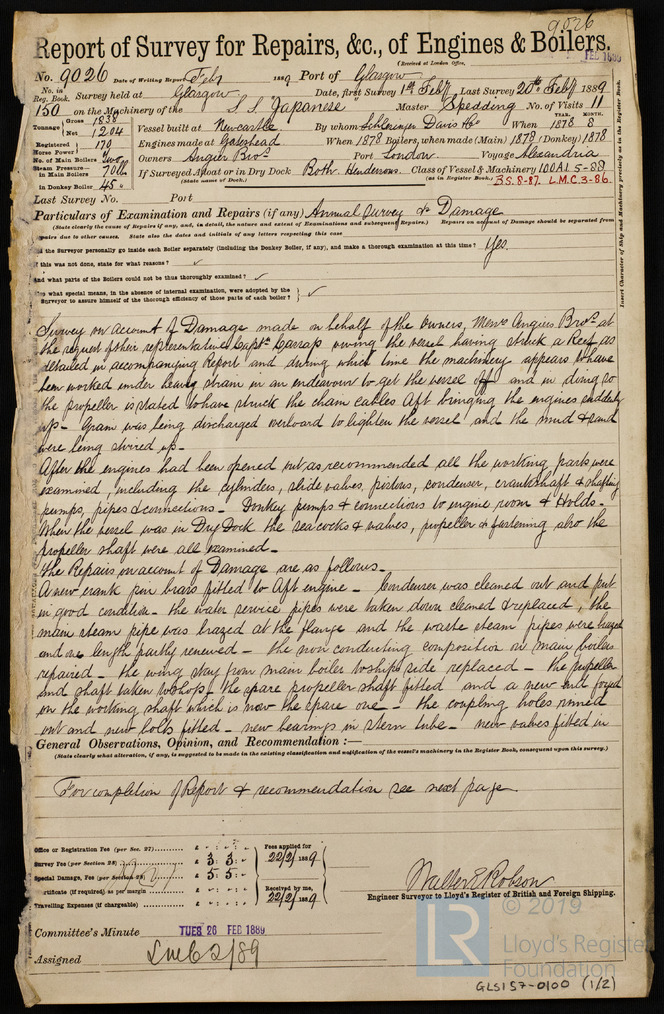 9026
Report of Survey for Repairs, &c., of Engines & Boilers.
(Received at London Office, FEB 1889
No. 9026 Date of Writing Report Feby 1889 Port of Glasgow
No. in Reg. Book. Survey held at Glasgow Date, first Survey 1st Feby Last Survey 20th Feby 1889
150 on the Machinery of the S.S. "Japanese" Master Spedding No. of Visits 11
Tonnage Gross 1838 Net 1204 Vessel built at Newcastle By whom Schlesinger Davis & Co When YEAR. 1878 MONTH. 8
Registered Horse Power 170 Engines made at Gateshead When 1878 Boilers, when made (Main) 1878 (Donkey) 1878
No. of Main Boilers two Owners Angier Bros. Port London Voyage Alexandria
Steam Pressure in Main Boilers 70 lb If Surveyed Afloat or in Dry Dock Both Hendersons. Class of Vessel & Machinery 100A1 5-88
(State name of Dock.) (as in Register Book.) B.S. 8-87. L.M.C. 3-86.
in Donkey Boiler 45 "
Insert Character of Ship and Machinery precisely as in the Register Book.
Last Survey No. Port
Particulars of Examination and Repairs (if any) Annual Survey & Damage
(State clearly the cause of Repairs if any, and, in detail, the nature and extent of Examinations and subsequent Repairs.) Repairs on account of Damage should be separated from
repairs due to other causes. State also the dates and initials of any letters respecting this case
the Surveyor personally go inside each Boiler separately (including the Donkey Boiler, if any), and make a thorough examination at this time? Yes.
If this was not done, state for what reasons? ✓
And what parts of the Boilers could not be thus thoroughly examined? ✓
what special means, in the absence of internal examination, were adopted by the
Surveyor to assure himself of the thorough efficiency of those parts of each boiler? } ✓
Survey on account of Damage made on behalf of the Owners, Messrs Angiers Bros. at
the request of their representative Captn. owing the vessel having struck a Reef as
detailed in accompanying Report and during which time the machinery appears to have
been worked under heavy strain in an endeavour to get the vessel off and in doing so
the propeller is stated to have struck the chain cables Aft bringing the engines suddenly
up - Grain was being discharged overboard to lighten the vessel and the mud & sand
were being stirred up -
After the engines had been opened out as recommended all the working parts were
examined, including the cylinders, slide valves, pistons, condenser, crankshaft & shafting
pumps, pipes & connections - Donkey pumps & connections to engine room & Holds -
When the vessel was in Dry Dock the sea cocks & valves, propeller & fastening also the
propeller shaft were all examined -
The Repairs on account of Damage are as follows -
A new crank pin brass fitted to Aft engine - Condenser was cleaned out and put
in good condition - the water service pipes were taken down cleaned & replaced, the
main steam pipe was brazed at the flange and the waste steam pipes were brazed
and one length partly renewed - the non conducting composition on main boiler
repaired - the wing stay from main boiler to ships side replaced - the propeller
and shaft taken to shop, the spare propeller shaft fitted and a new end forged
on the working shaft which is now the spare one - the coupling holes rimed
out and new bolts fitted - new bearings in stern tube - new valves fitted in
General Observations, Opinion, and Recommendation :—
(State clearly what alteration, if any, is suggested to be made in the existing classification and notification of the vessel's machinery in the Register Book, consequent upon this survey.)
For completion of Report & recommendation see next page.
Office or Registration Fee (per Sec. 27)........ £ Fees applied for
Survey Fee (per Section 28) ........ £ 3 : 3 : - 22/2/ 1889
Special Damage, Fee (per Section 28) £ 5 : 5 : -
Certificate (if required) as per margin £ Received by me,
Travelling Expenses (if chargeable) ........ £ 22/2/ 1889
Walter E Robson
Engineer Surveyor to Lloyd's Register of British and Foreign Shipping.
Committee's Minute TUES 26 FEB 1889
Assigned LMC 2/89
© 2019
LR
Lloyd's Register
Foundation
GLS157-0100 (1/2)